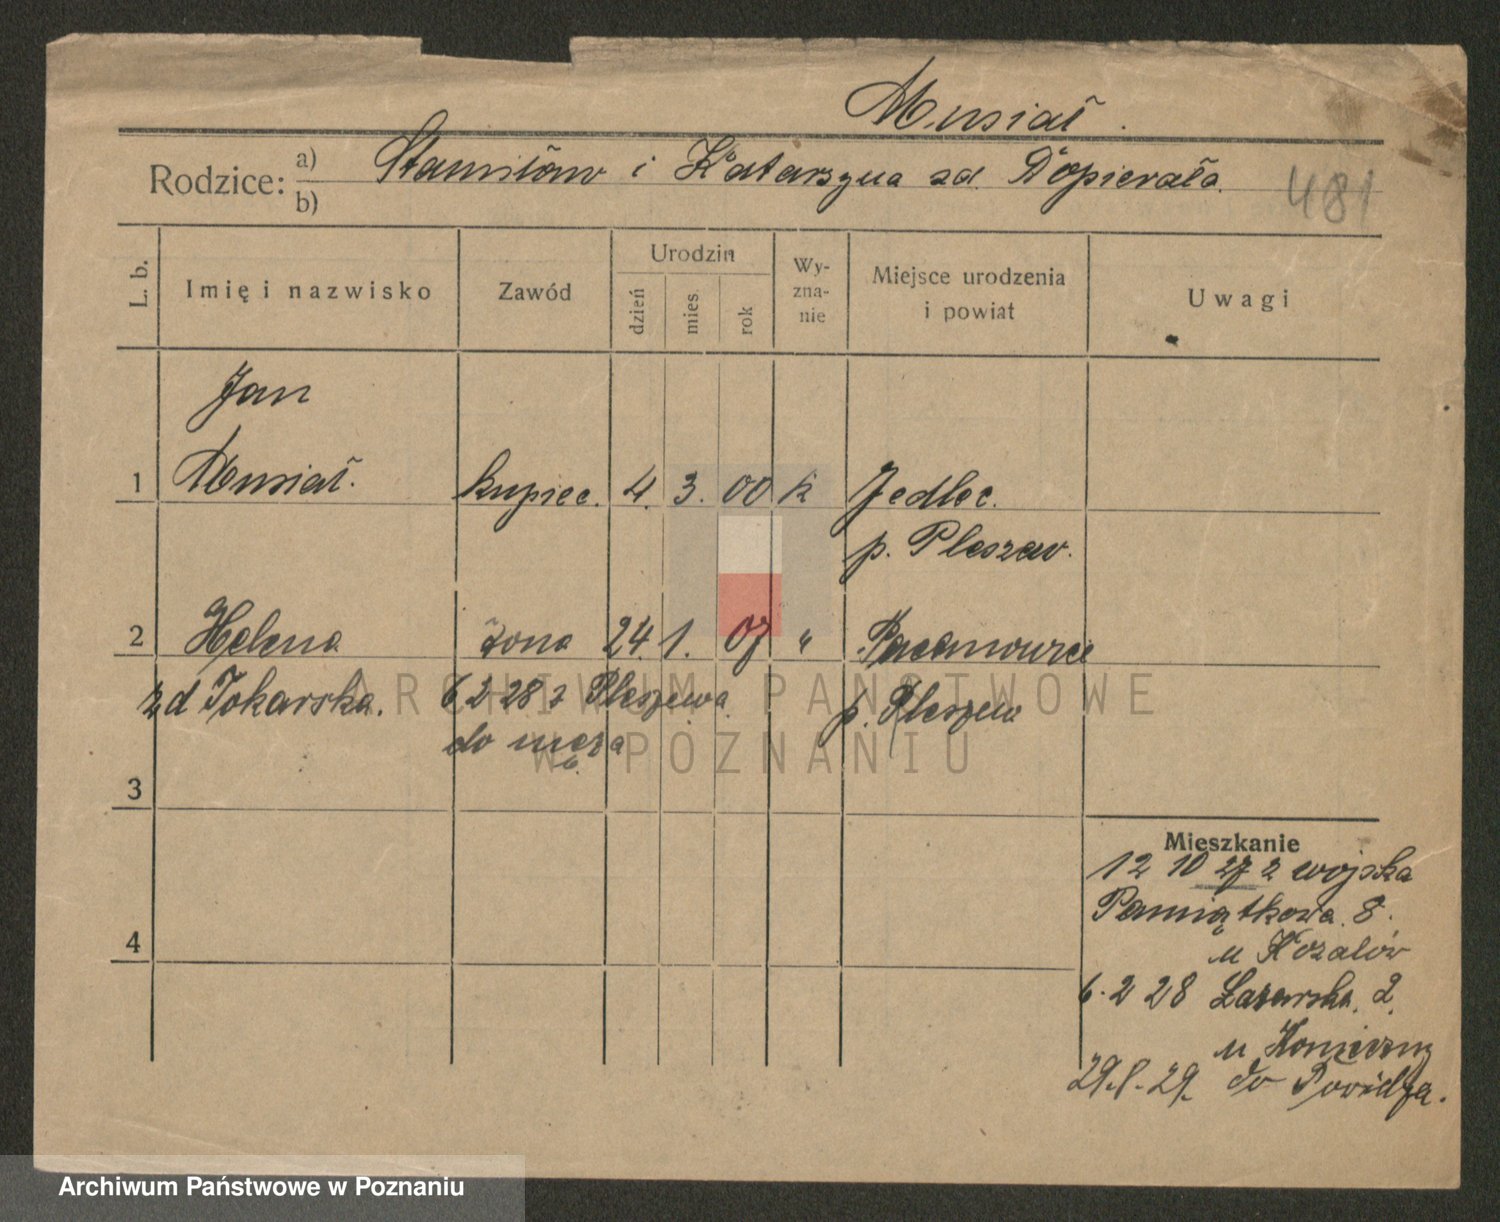 Musiał.
Rodzice: a) Stanisław i Katarzyna zd. Dopierała.
b)
481
L. b.
Imię i nazwisko
Zawód
Urodzin
dzień
mies.
rok
Wy-
zna-
nie
Miejsce urodzenia
i powiat
Uwagi
Jan
1 Musiał. kupiec. 4. 3. 00 k Jedlec.
p. Pleszew.
2 Helena żona 24. 1. 07 "
zd Tokarska. 6 2 28 z Pleszewa p. Pleszew
do męża
3
4
Mieszkanie
12 10 27 z wojska
Pamiątkowa 8.
u Kozalów
6. 2 28 Łazarska. 2.
u Konieczny
29. 29. do Powidza.
ARCHIWUM PAŃSTWOWE
W POZNANIU
Archiwum Państwowe w Poznaniu